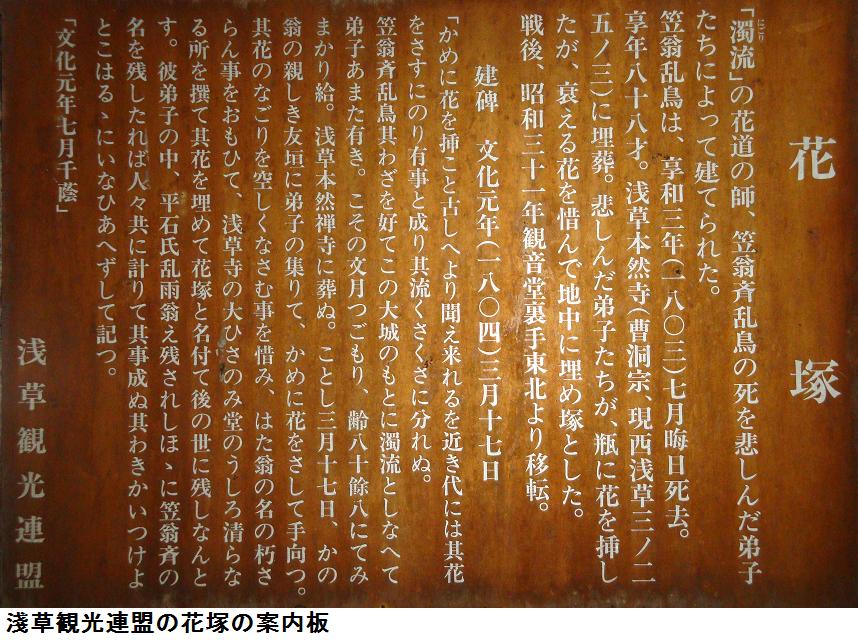 花塚
「濁流」の花道の師、笠翁斉乱鳥の死を悲しんだ弟子
にごり
たちによって建てられた。
笠翁乱鳥は、享和三年(一八〇三)七月晦日死去。
享年八十八才。浅草本然寺(曹洞宗、現西浅草三ノ二
五ノ三)に埋葬。悲しんだ弟子たちが、瓶に花を挿し
たが、衰える花を惜んで地中に埋め塚とした。
戦後、昭和三十一年観音堂裏手東北より移転。
建碑 文化元年(一八〇四)三月十七日
「かめに花を挿こと古しへより聞え来れるを近き代には其花
をさすにのり有事と成り其流くさぐさに分れぬ。
笠翁斉乱鳥其わざを好てこの大城のもとに濁流としなへて
弟子あまた有き。こその文月つごもり、齢八十餘八にてみ
まかり給。浅草本然禅寺に葬ぬ。ことし三月十七日、かの
翁の親しき友垣に弟子の集りて、かめに花をさして手向つ。
其花のなごりを空しくなさむ事を惜み、はた翁の名の朽さ
らん事をおもひて、浅草寺の大ひさのみ堂のうしろ清らな
る所を撰て其花を埋めて花塚と名付て後の世に残しなんと
す。彼弟子の中、平石氏乱雨翁え残されしほゝに笠翁斉の
名を残したれば人々共に計りて其事成ぬ其わきかいつけよ
とこはるゝにいなひあへずして記つ。
「文化元年七月千蔭」
浅草観光連盟
浅草観光連盟の花塚の案内板